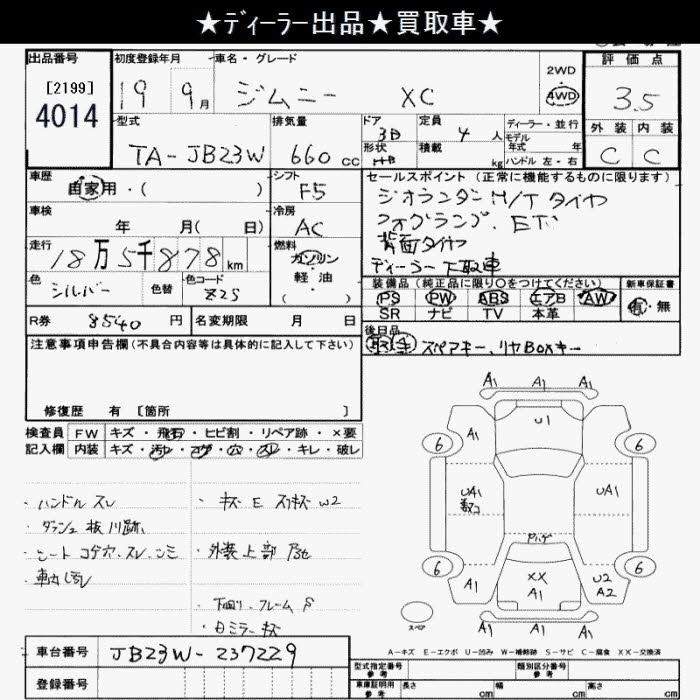 ★ディーラー出品★買取車★
出品番号
[2199]
4014
初度登録年月
19 9月
車名・グレード
ジムニー XC
2WD
4WD
評価点
3.5
外装 内装
C C
型式
TA-JB23W
排気量
660cc
ドア
3D
形状
HB
定員
4人
積載
kg
ディーラー・並行
モデル
年式 年
ハンドル 左・右
車歴
自家用・( )
シフト
F5
セールスポイント(正常に機能するものに限ります)
ジオランダン M/T タイヤ
フォグランプ. ET
背面タイヤ
ディーラー下取車
車検
年 月( 日)
冷房
AC
走行
18万5千878km
燃料
ガソリン
・
軽油
( )
色
シルバー
色替
色コード
Z2S
装備品(純正品に限り〇をつけてください)
PS PW ABS エアB AW
SR ナビ TV 本革
新車保証書
有・無
R券 8540円
名変期限 月 日
後日品
取 スペアキー、リヤBOXキー
注意事項申告欄(不具合内容等は具体的に記入して下さい)
修復歴 有 [箇所 ]
検査員 FW キズ・飛石・ヒビ割・リペア跡・×要
記入欄 内装 キズ・汚レ・コゲ・穴・スレ・キレ・破レ
・ハンドル スレ
・ダッシュ 板 川跡
・シート コゲ穴.スレ.シミ
・車内
・キズ E スリキズ W2
・外装上部
・下回り.フレーム S
・ミラー キズ
A1 A1 A1
A1
U1
6 6
UA1
UA1
6 6
A1
XX
A1
U2
A2
A1 A1 A1
スペア
A-キズ E-エクボ U-凹み W-補修跡 S-サビ C-腐食 XX-交換済
車台番号 JB23W-237229
登録番号
型式指定番号
参考
類別区分番号
参考
車庫証明用
参考
長さ cm
幅 cm
高さ cm